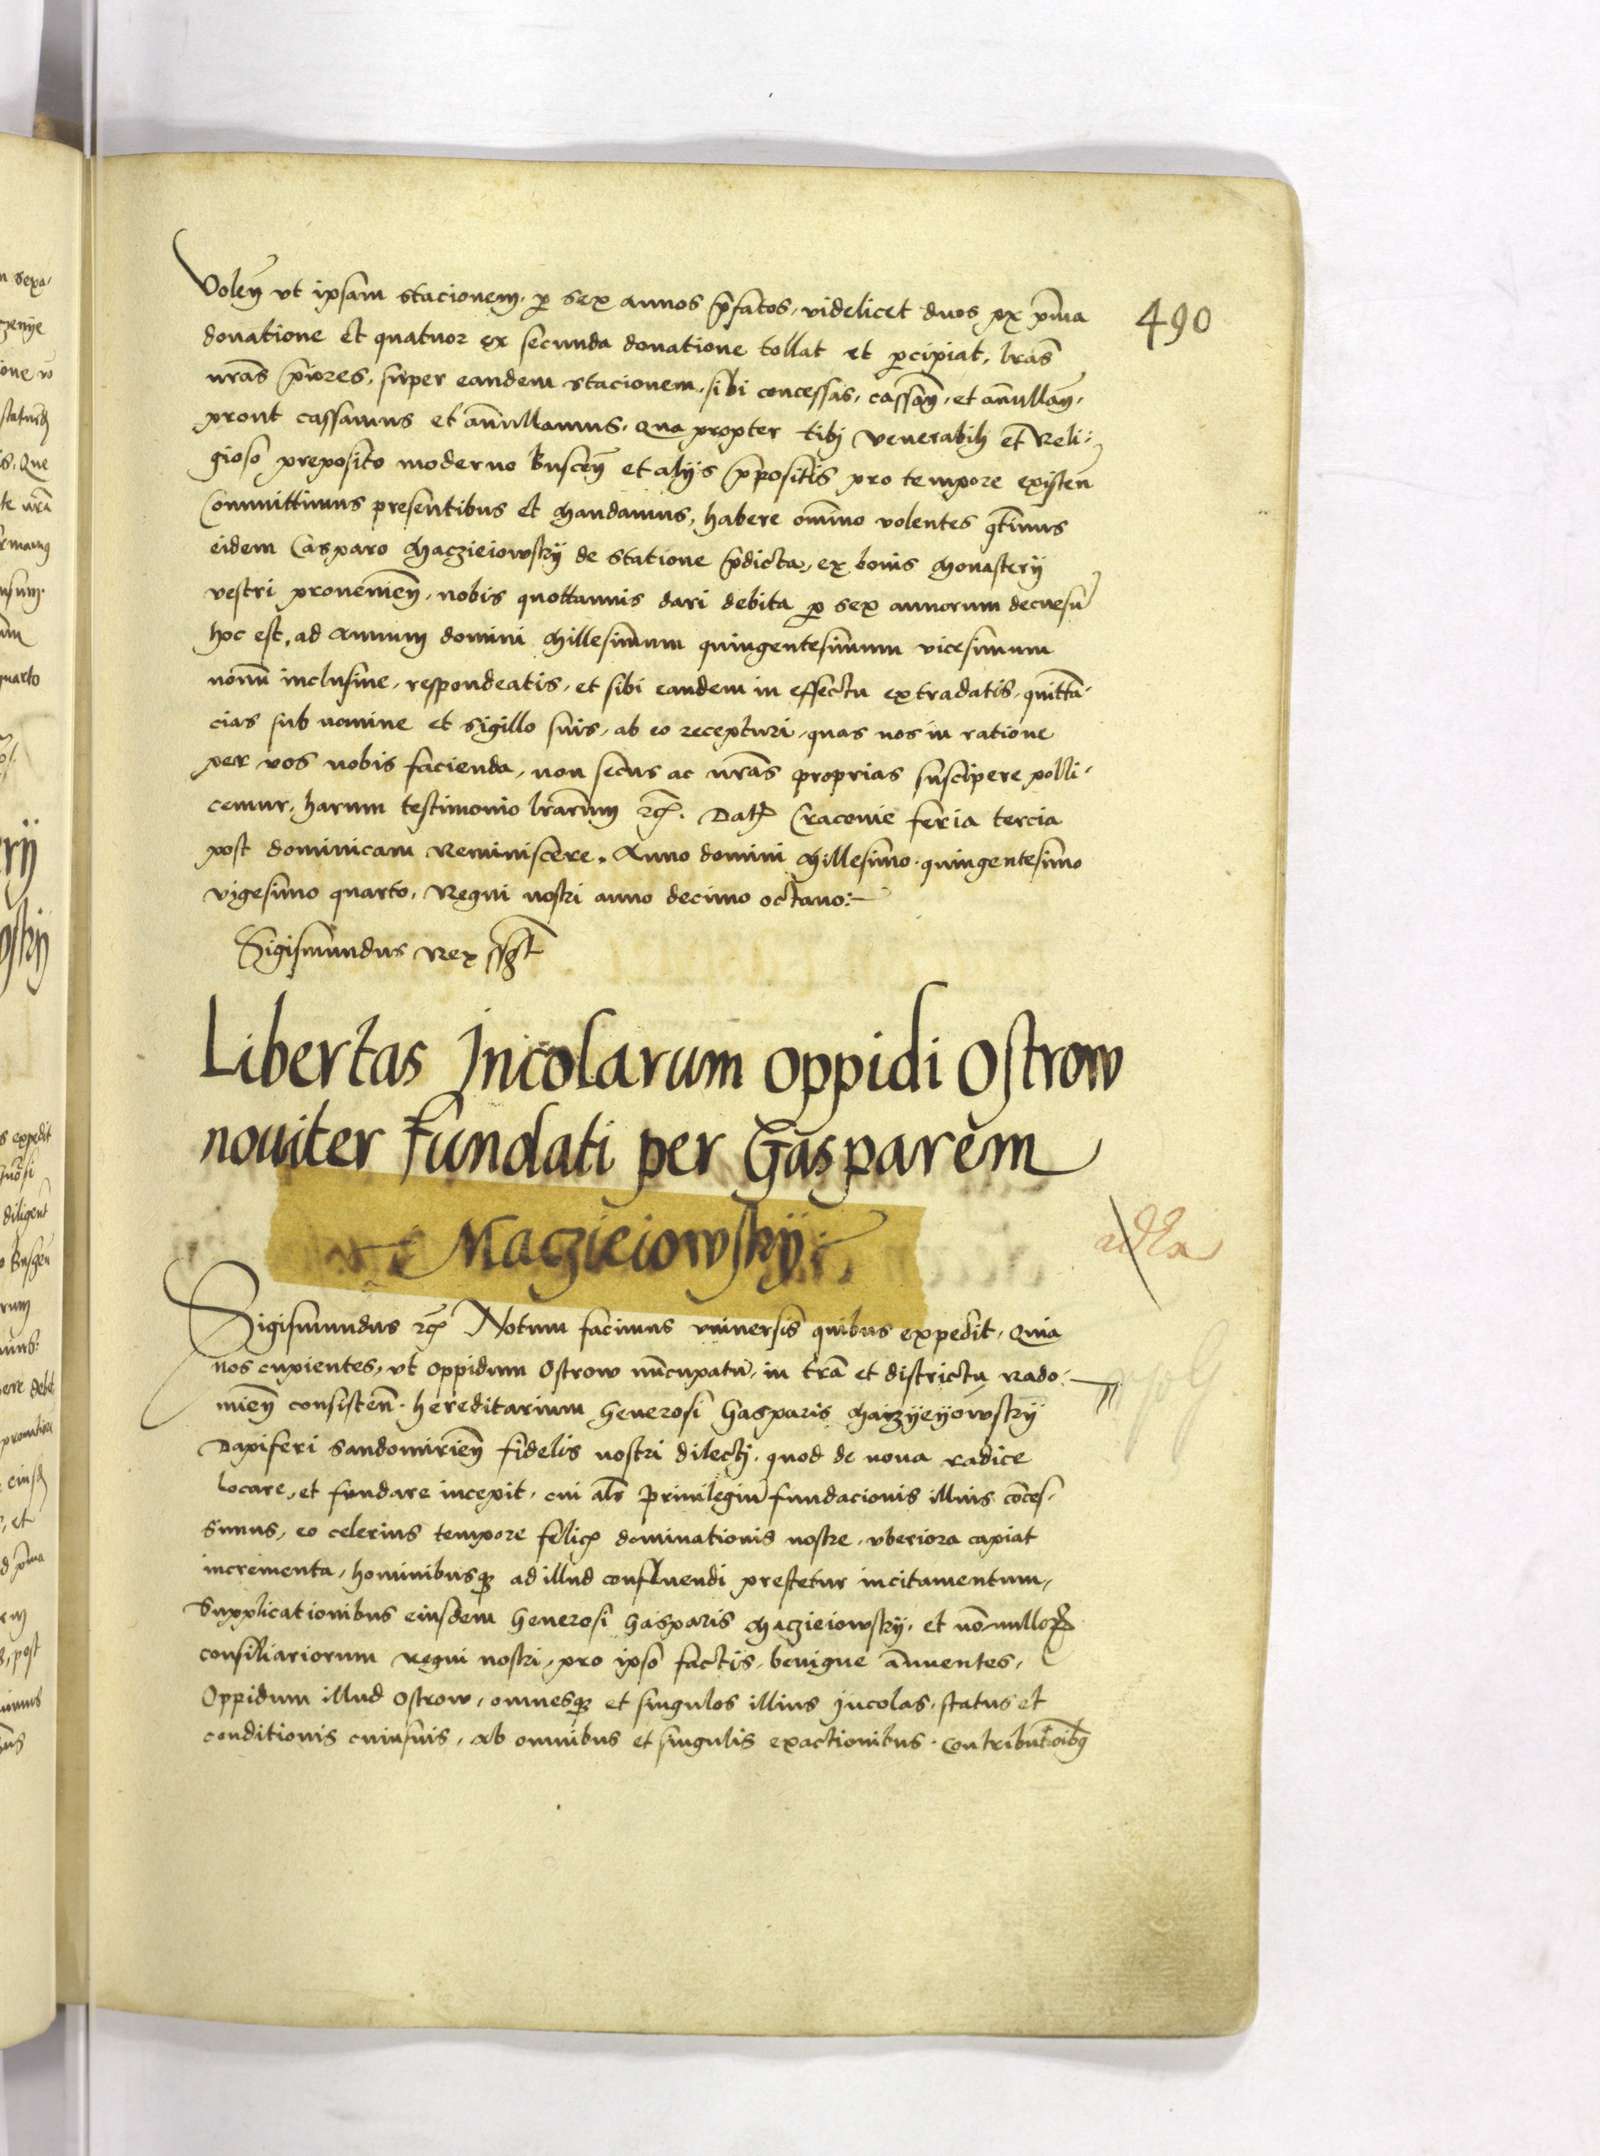 490
Voleñ vt ipsam stacionem, p sex annos p̃fatos, videlicet duos ex p̃ma
donatione et quatuor ex secunda donatione tollat et p̱cipiat, lr̃as
nr̃as p̃iores, super eandem stacionem, sibi concessas, cassañ, et añullañ,
prout cassamus et añullamus, Qua propter tibi Venerabili et Reli-
gioso preposito moderno Busceñ et alijs p̃positis pro tempore existeñ
Committimus presentibus et Mandamus, habere om̃ino volentes q̃tinus
eidem Casparo Maczieiowskÿ de statione p̃dicta, ex bonis Monasterÿ
vestri provenieñ, nobis quottannis dari debita p sex annorum decursũ
hoc est, ad Annum domini Millesimum quingentesimum vicesimum
nonũ inclusiue, respondeatis, et sibi eandem in effectu extradatis, quittã-
cias sub nomine et sigillo suis, ab eo recepturi, quas nos in ratione
per vos nobis facienda, non secus ac nr̃as proprias suscipere polli-
cemur, harum testimonio lr̃arum etc̃. Dat̃ Cracouie feria tercia
post dominicam Reminiscere. Anno domini Millesimo quingentesimo
vigesimo quarto, Regni nostri anno decimo octauo:-
Sigismundus Rex ss̃t
Libertas Incolarum oppidi Ostrow
nouiter fundati per Gasparem
Maczieiowskÿ
Sigismundus etc̃ Notum facimus vniuersis quibus expedit, Quia
nos cupientes, vt oppidum Ostrow nũcupatũ, in tr̃a et districtu Rado-
mieñ consisteñ. hereditarium Generosi Gasparis Maczÿeÿowskÿ
Dapiferi Sandomirieñ fidelis nostri dilecti, quod de noua radice
locare, et fundare incepit, cui al̃s Priuilegiũ fundacionis illius conces-
simus, eo celerius tempore felic̃ dominationis nostre, vberiora capiat
incrementa, hominibusq3 ad illud confluendi prestetur incitamentum,
Supplicationibus eiusdem Generosi Gasparis Maczieiowskÿ, et nõnulloꝝ
consiliariorum Regni nostri, pro ipso factis, benigne ãnuentes,
Oppidum illud Ostrow, omnesq3 et singulos illius Incolas, status et
conditionis cuiusuis, Ab omnibus et singulis exactionibus. Contributõibꝯ